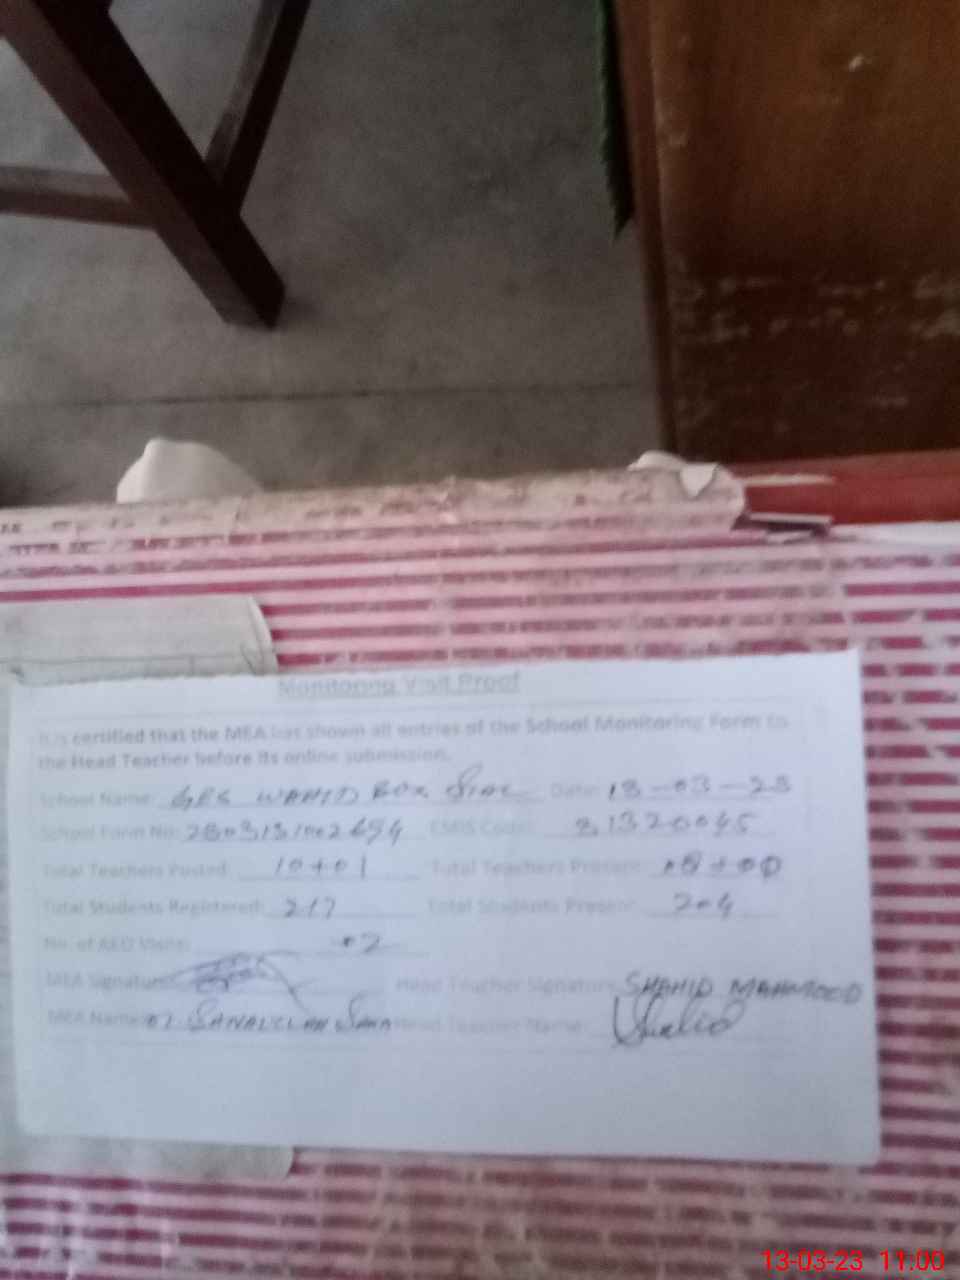 Monitoring Visit Proof
It is certified that the MEA has shown all entries of the School Monitoring Form to
the Head Teacher before its online submission.
School Name: GPS WAHID BOX SIAL Date: 13-03-23
School Form No: EMIS Code:
Total Teachers Posted: 10+01 Total Teachers Present: 08+00
Total Students Registered: 217 Total Students Present: 204
No. of AEO Visits: 02
MEA Signature Head Teacher Signature: SHAHID MAHMOOD
MEA Name: Head Teacher Name: Shahid
13-03-23 11:00